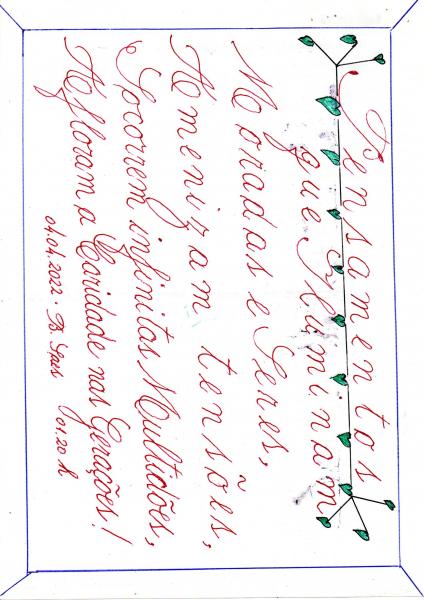 Pensamentos
que Iluminam
Moradas e Seres,
Amenizam tensões,
Socorrem infinitas Multidões,
Afloram a Caridade nas Gerações!
04.04.2022. 01:20 h